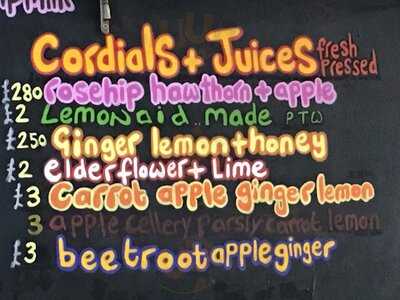 Cordials + Juices fresh Pressed
£280 rosehip hawthorn + apple
£2 Lemonaid .. made PTW
£250 Ginger lemon + honey
£2 elderflower + Lime
£3 Carrot apple ginger lemon
3 apple cellery parsly carrot lemon
£3 beetroot apple ginger